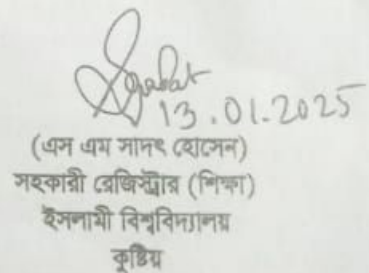 13.01.2025
(এস এম সাদৎ হোসেন)
সহকারী রেজিস্ট্রার (শিক্ষা)
ইসলামী বিশ্ববিদ্যালয়
কুষ্টিয়া